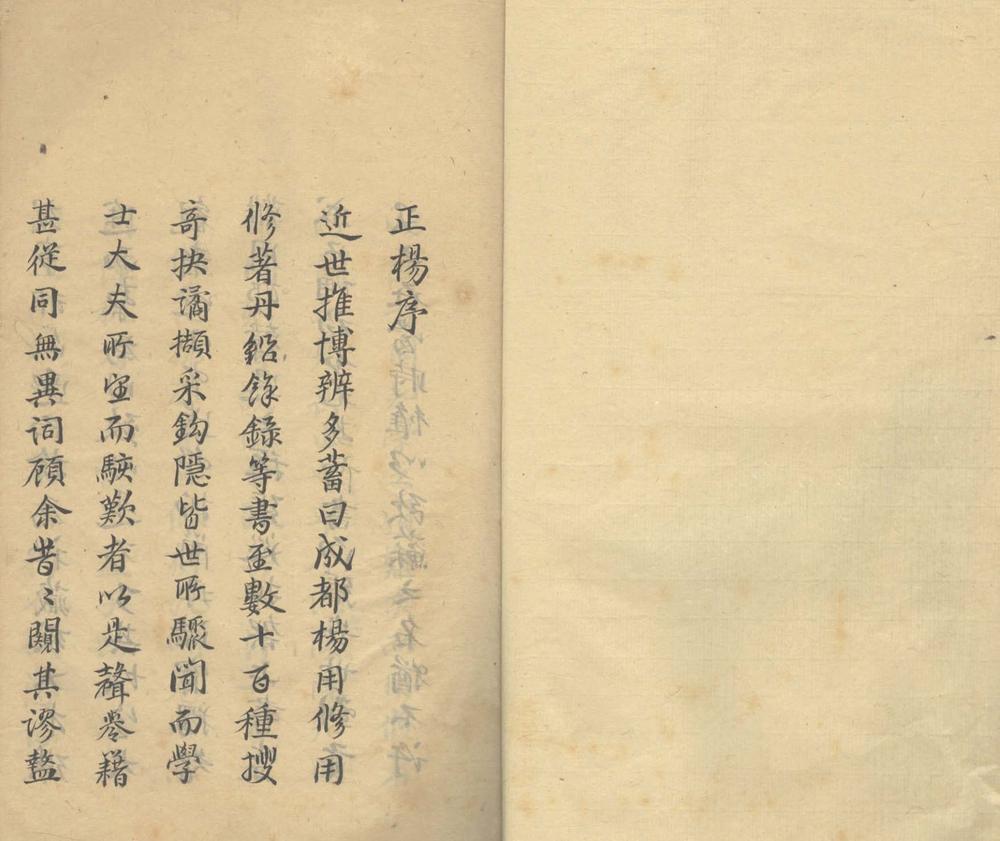 正楊序
近世推博辨多蓄曰成都楊用修用
修著丹鉛餘錄等書至數十百種搜
奇抉譎擷采鈎隱皆世所驟聞而學
士大夫所望而駭歎者以是聲譽籍
甚從同無異詞顧余昔〻闚其謬盭